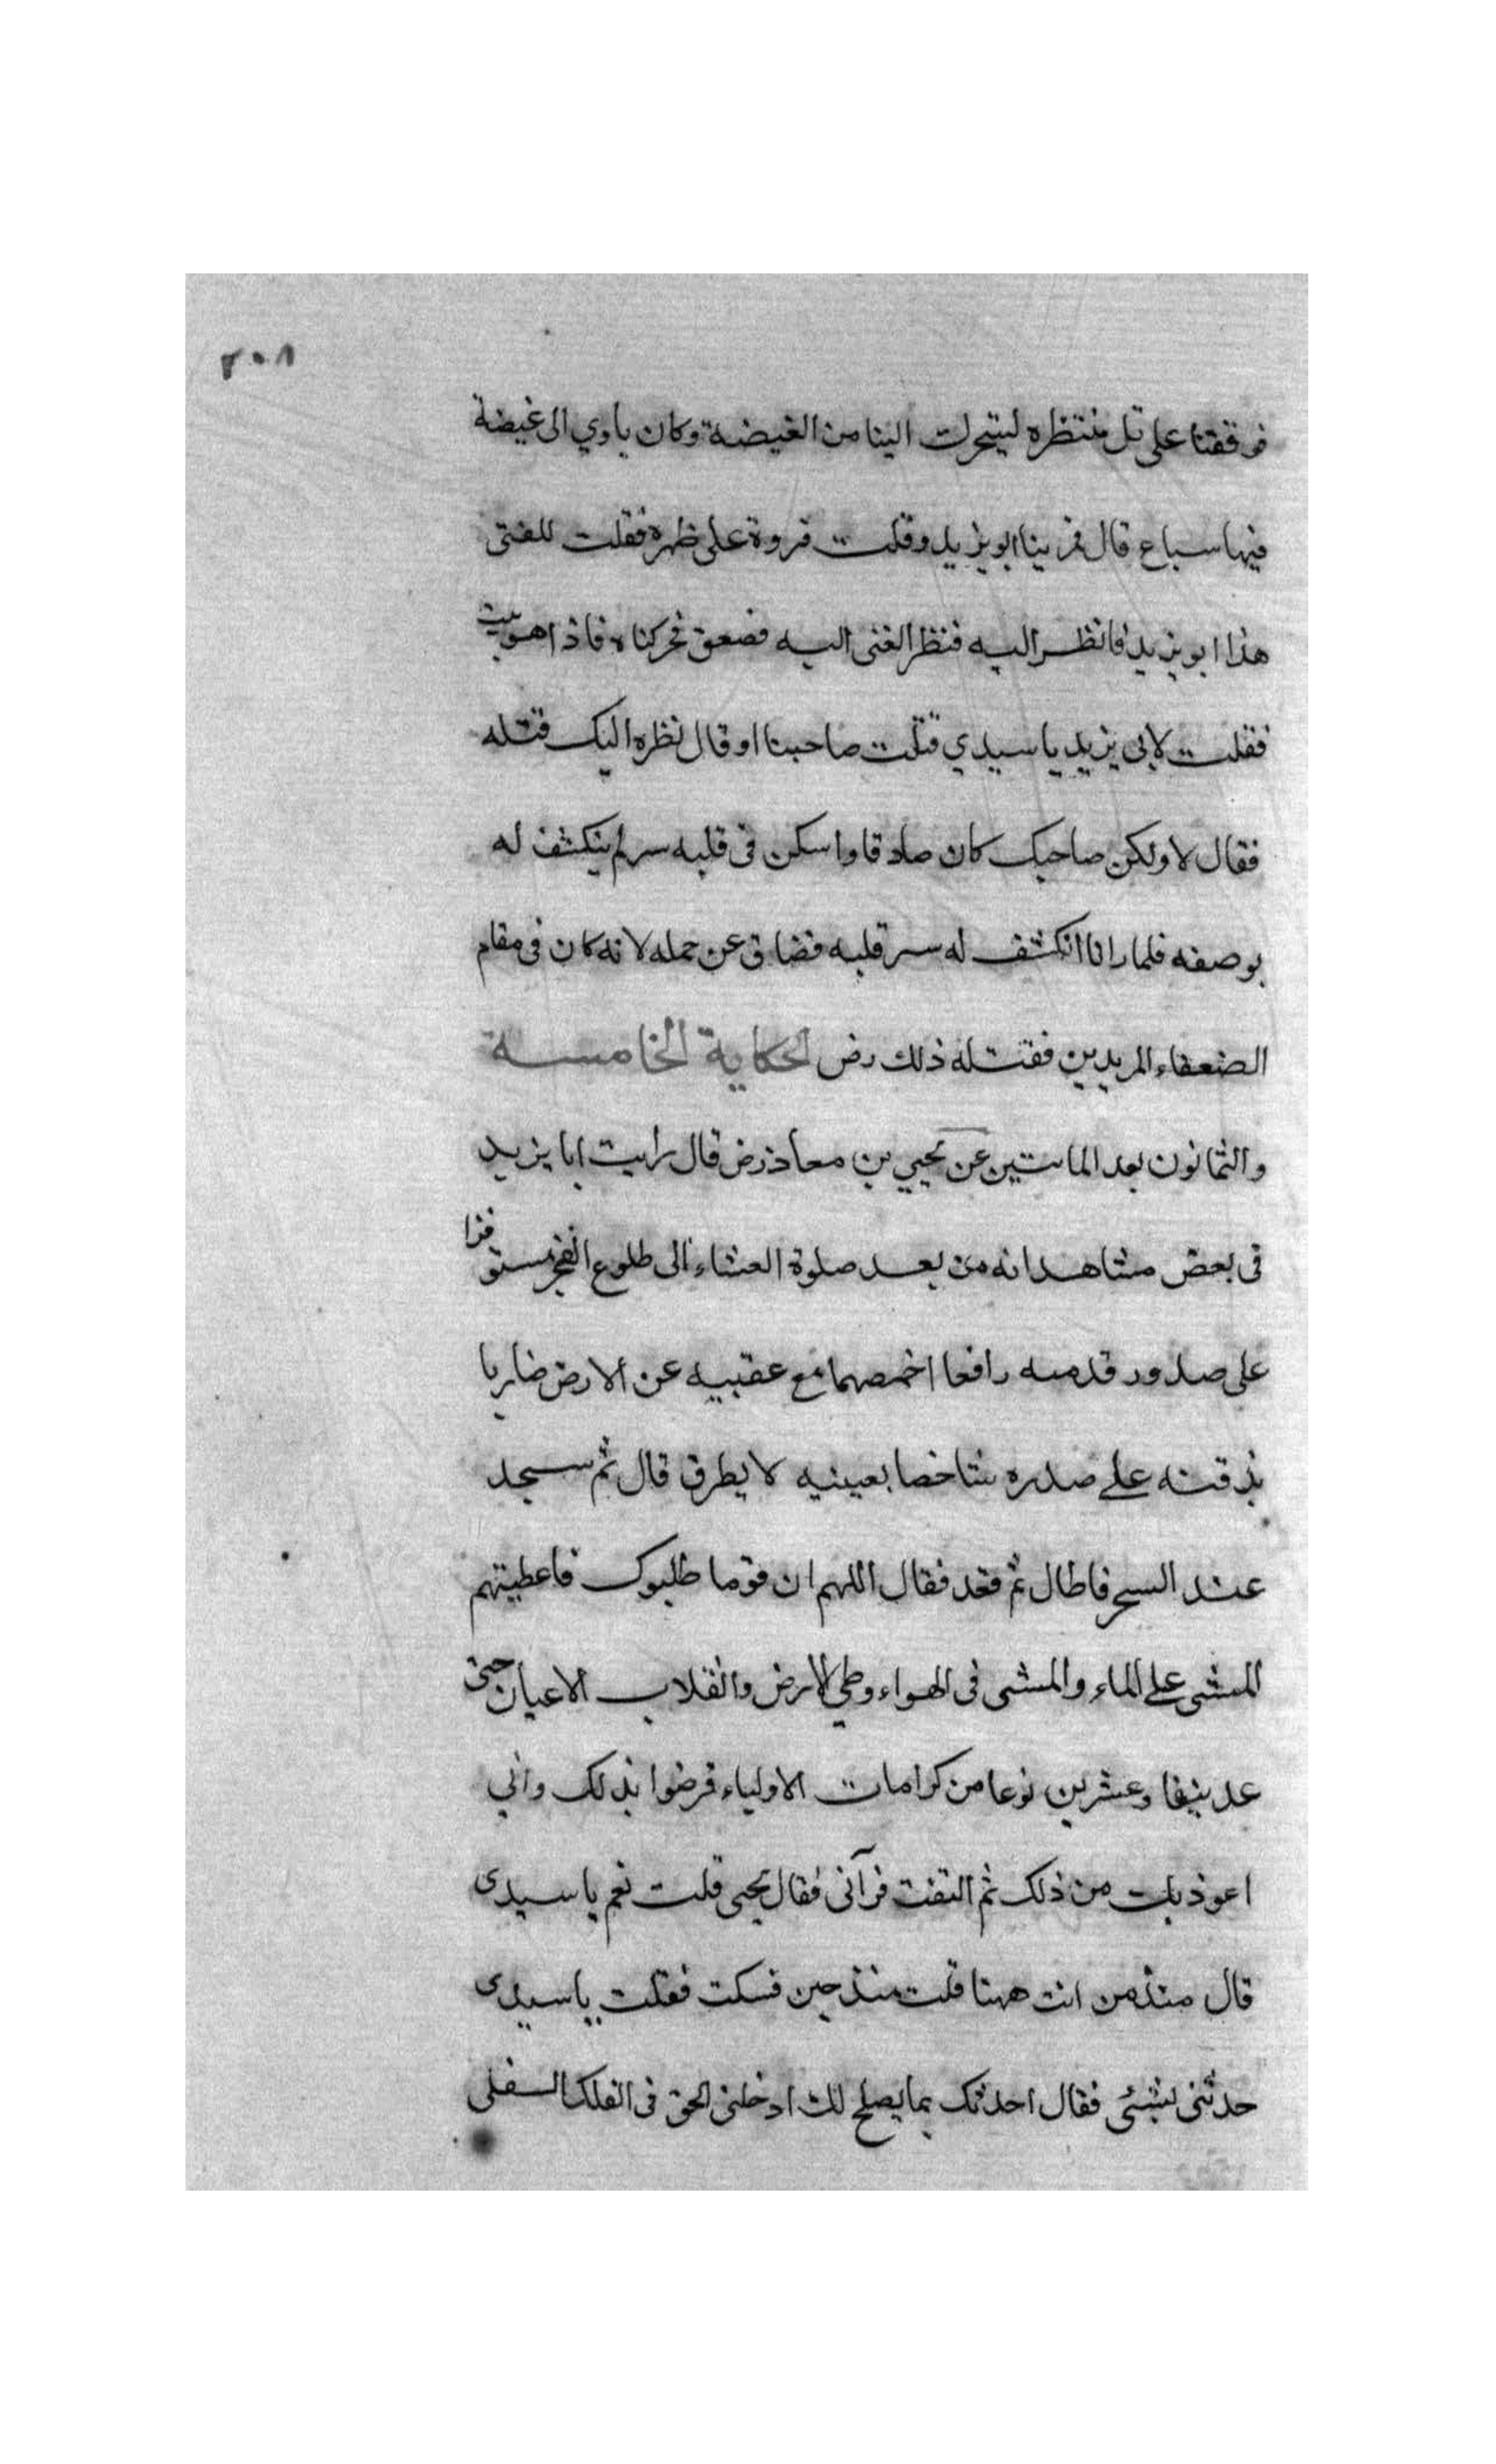 ٢٠٨
فوقفنا على تل منتظره ليتحرك الينا من الغيضة وكان ياوي الى غيضة
فيها سباع قال فمر بنا ابو يزيد وقلب فروة على ظهره فقلت للفتى
هذا ابو يزيد فانظر اليه فنظر الفتى اليه فصعق فحركناه فاذا هو ميت
فقلت لابى يزيد يا سيدي قتلت صاحبنا او قال نظره اليك قتله
فقال لا ولكن صاحبك كان صادقا واسكن فى قلبه سر لم ينكشف له
بوصفه فلما رانا انكشف له سر قلبه فضاق عن حمله لانه كان فى مقام
الضعفاء المريدين فقتله ذلك رض الحكاية الخامسة
والثمانون بعد المائتين عن يحيي بن معاذ رض قال رايت ابا يزيد
فى بعض مشاهداته من بعد صلوة العشاء الى طلوع الفجر مستوفزا
على صدور قدميه رافعا اخمصهما مع عقبيه عن الارض ضاربا
بذقنه على صدره شاخصا بعينيه لا يطرق قال ثم سجد
عند السحر فاطال ثم قعد فقال اللهم ان قوما طلبوك فاعطيتهم
المشى على الماء والمشى فى الهواء وطي الارض وانقلاب الاعيان حتى
عد نيفا وعشرين نوعا من كرامات الاولياء فرضوا بذلك واني
اعوذ بك من ذلك ثم التفت فرآنى فقال يحيى قلت نعم يا سيدى
قال منذ من انت ههنا قلت منذ حين فسكت فقلت يا سيدى
حدثنى بشئ فقال احدثك بما يصلح لك ادخلنى الحق فى الفلك السفلى